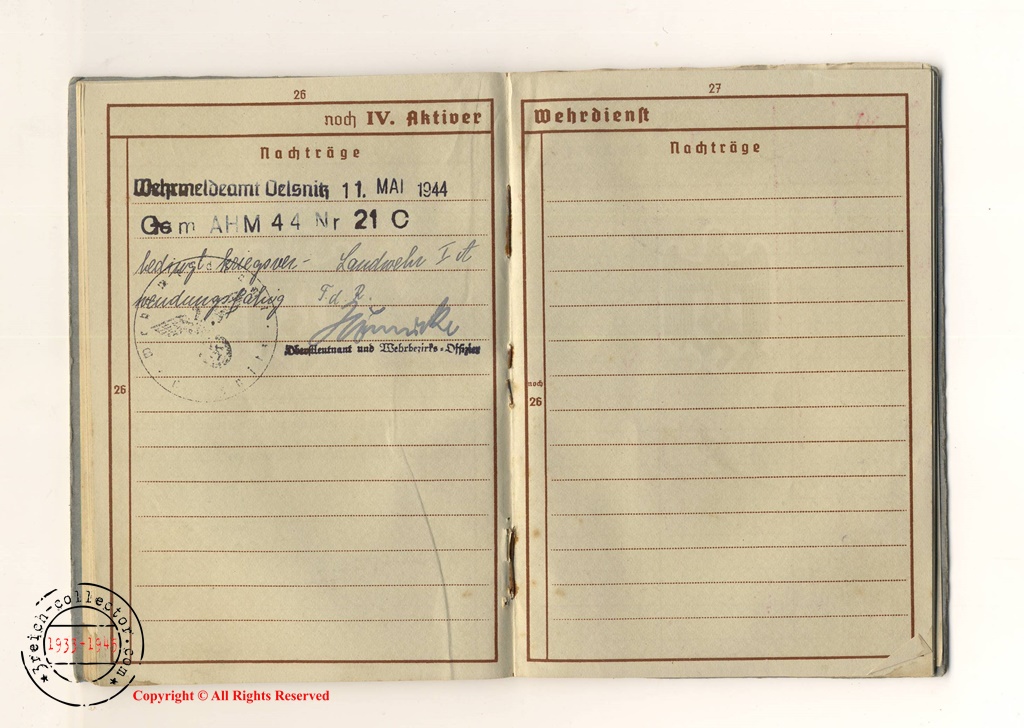 26
noch IV. Aktiver
Nachträge
Wehrmeldeamt Oelsnitz 11. MAI 1944
Gem AHM 44 Nr 21 C
bedingt kriegsver- Landwehr I A
wendungsfähig F.d.R.
Oberstleutnant und Wehrbezirks-Offizier
26
27
Wehrdienst
Nachträge
noch
26
3reich-collector.com
1933-1945
Copyright © All Rights Reserved